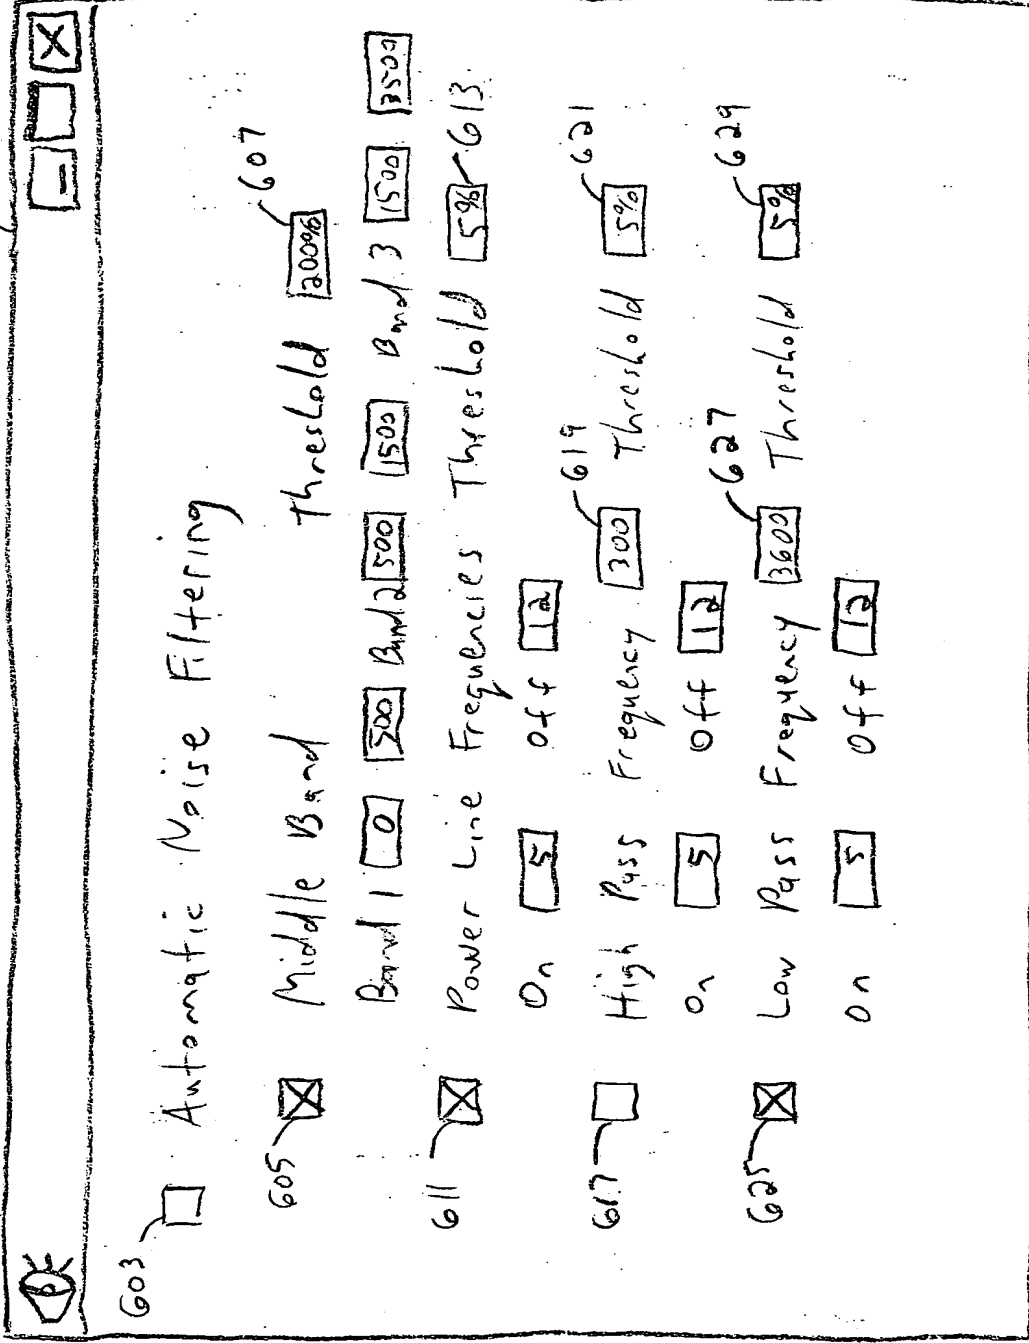 603
Automatic Noise Filtering
605 Middle Band Threshold 200% 607
Band 1 0 500 Band 2 500 1500 Band 3 1500 3500
611 Power Line Frequencies Threshold 5% 613
On 5 Off 12
617 High Pass Frequency 300 619 Threshold 5% 621
On 5 Off 12
625 Low Pass Frequency 3600 627 Threshold 5% 629
On 5 Off 12